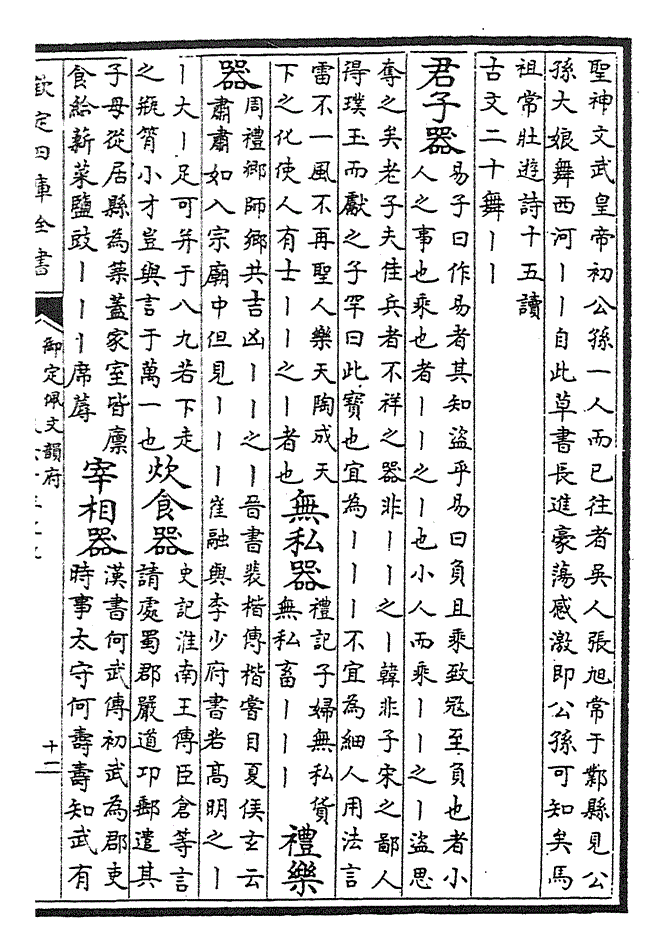 聖神文武皇帝初公孫一人而已往者吳人張旭常于鄴縣見公
孫大娘舞西河丨丨自此草書長進豪蕩感激即公孫可知矣馬
祖常壯遊詩十五讀
古文二十舞丨丨
君子器
易子曰作易者其知盗乎易曰負且乘致冦至負也者小
人之事也乘也者丨丨之丨也小人而乘丨丨之丨盗思
奪之矣老子夫佳兵者不祥之器非丨丨之丨韓非子宋之鄙人
得璞玉而獻之子罕曰此寳也宜為丨丨丨不宜為細人用法言
雷不一風不再聖人樂天陶成天
下之化使人有士丨丨之丨者也
無私器
禮記子婦無私貨
無私畜丨丨丨
禮樂
器
周禮鄉師鄉共吉凶丨丨之丨晉書裴楷傳楷嘗目夏侯玄云
肅肅如入宗廟中但見丨丨丨崔融與李少府書若高明之丨
丨大丨足可并于八九若下走
之瓶筲小才豈與言于萬一也
炊食器
史記淮南王傳臣倉等言
請處蜀郡嚴道卭郵遣其
子母從居縣為築蓋家室皆廩
食給薪菜鹽豉丨丨丨席蓐
宰相器
漢書何武傳初武為郡吏
時事太守何壽壽知武有
欽定四庫全書
御定佩文韻府
十二